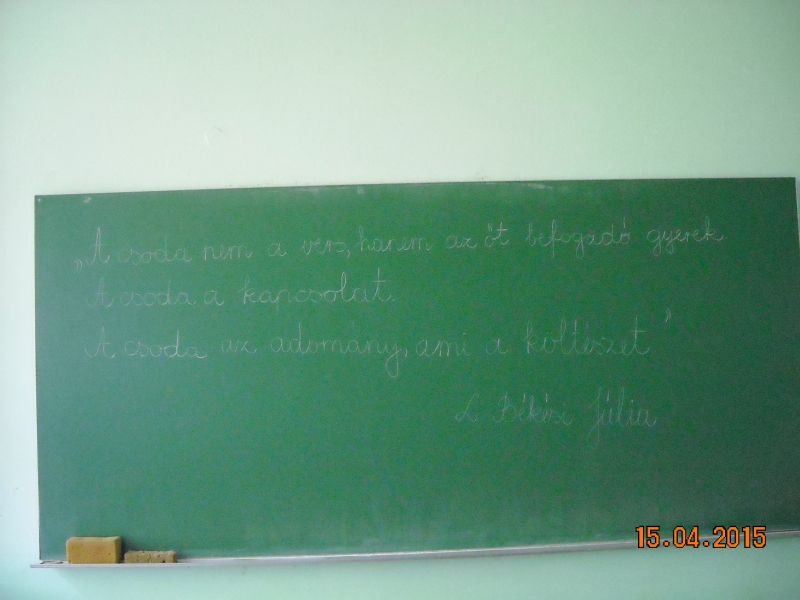 „A csoda nem a vers, hanem az őt befogadó gyerek.
A csoda a kapcsolat.
A csoda az adomány, ami a költészet”
L. Békési Júlia
15.04.2015